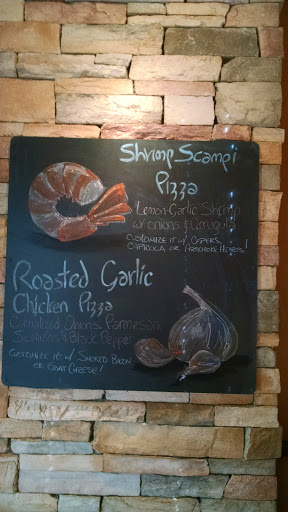 Shrimp Scampi
Pizza
Lemon-Garlic Shrimp
w/ onions & Arugula
Customize it w/ Capers,
Capicola or Artichoke Hearts!
Roasted Garlic
Chicken Pizza
Caramelized Onions, Parmesan,
Scallions & Black Pepper
Customize it w/ Smoked Bacon
or Goat Cheese!